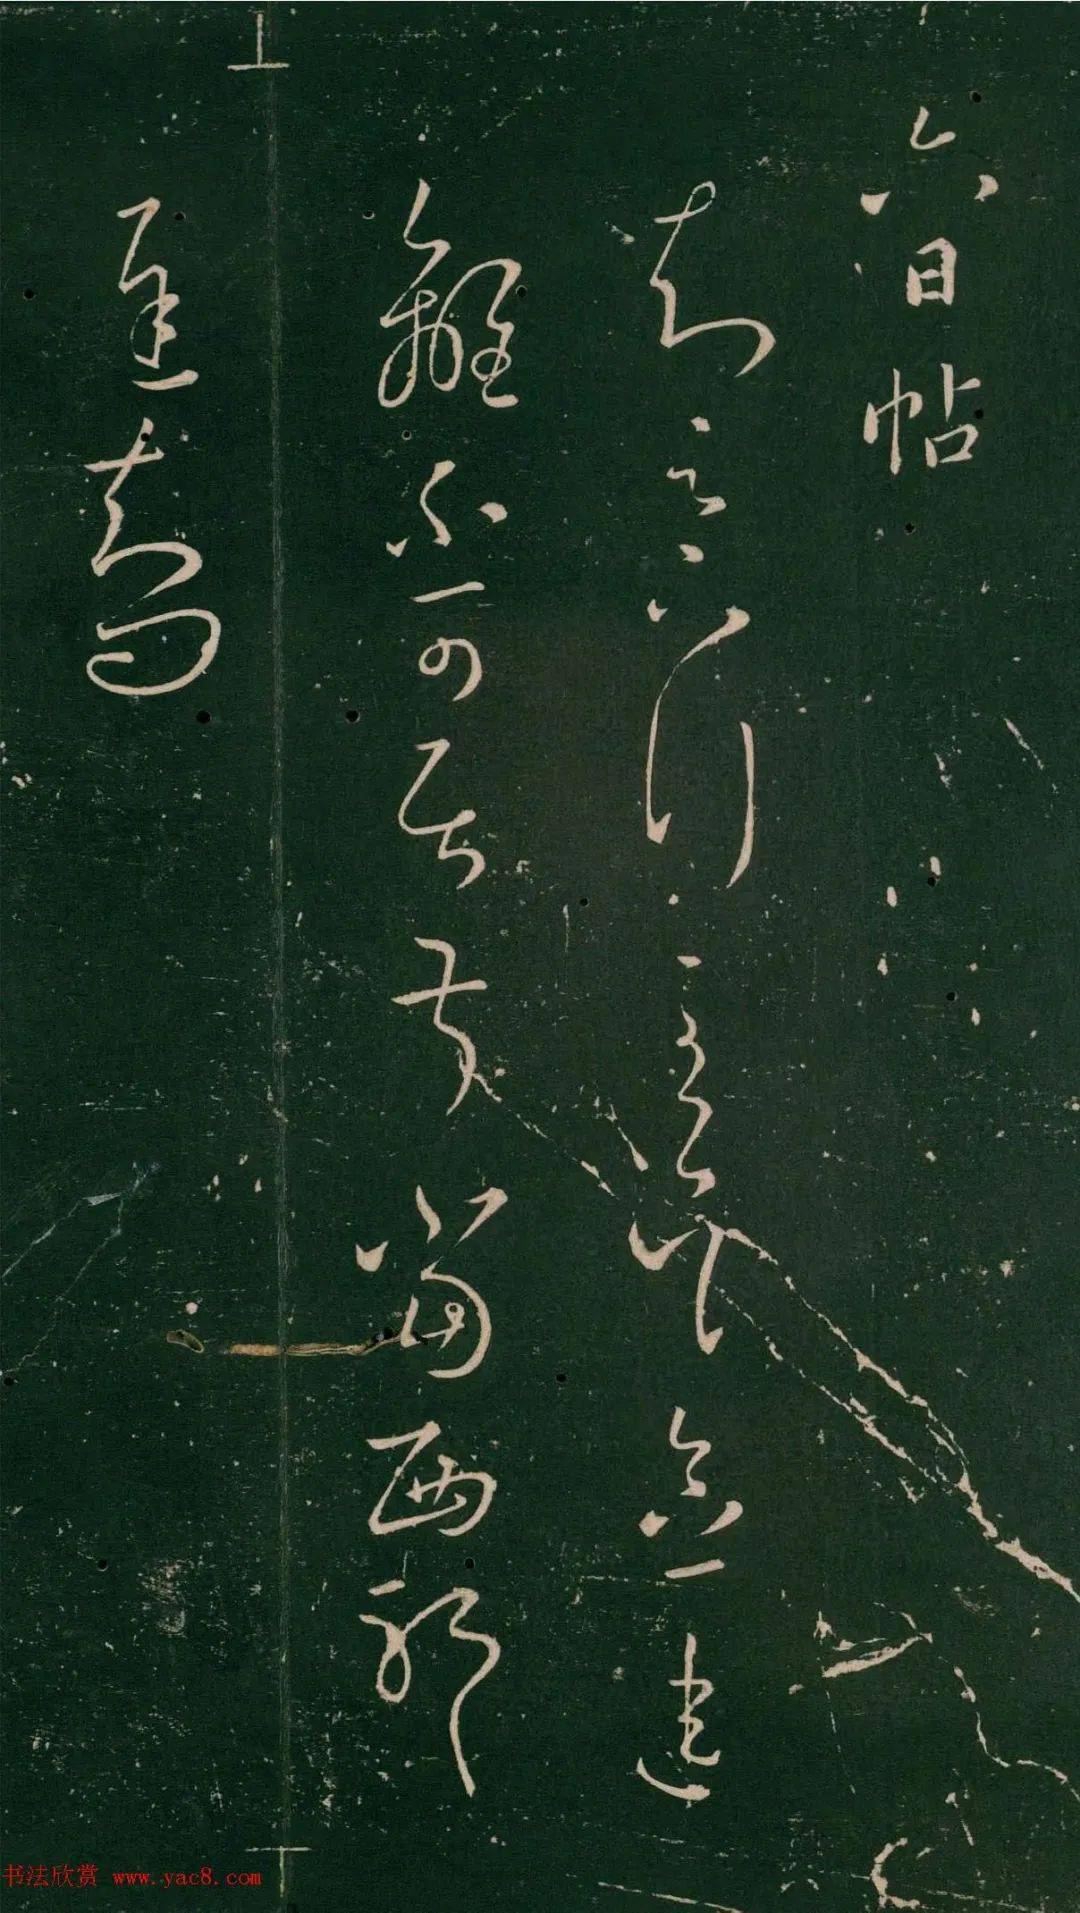 六日帖
知足下行至吴念違
離不可居叔當西耶
遲知問
书法欣赏 www.yac8.com